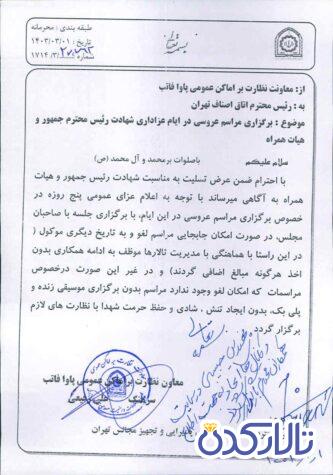 بسمه تعالی
طبقه بندی : محرمانه
تاریخ : ۱۴۰۳/۰۳/۰۱
شماره
از: معاونت نظارت بر اماکن عمومی پاوا فاتب
به : رئیس محترم اتاق اصناف تهران
موضوع : برگزاری مراسم عروسی در ایام عزاداری شهادت رئیس محترم جمهور و
هیات همراه
سلام علیکم
باصلوات برمحمد و آل محمد (ص)
با احترام ضمن عرض تسلیت به مناسبت شهادت رئیس جمهور و هیات
همراه به آگاهی میرساند با توجه به اعلام عزای عمومی پنج روزه در
خصوص برگزاری مراسم عروسی در این ایام، با برگزاری جلسه با صاحبان
مجلس، در صورت امکان جابجایی مراسم لغو و به تاریخ دیگری موکول (
در این راستا با هماهنگی با مدیریت تالارها موظف به ادامه همکاری بدون
اخذ هرگونه مبالغ اضافی گردند) و در غیر این صورت درخصوص
مراسمات که امکان لغو وجود ندارد مراسم بدون برگزاری موسیقی زنده و
پلی بک، بدون ایجاد تنش ، شادی و حفظ حرمت شهدا با نظارت های لازم
برگزار گردد
معاون نظارت بر اماکن عمومی پاوا فاتب
سرهنگ
پذیرایی و تجهیز مجالس تهران
تالارکدن